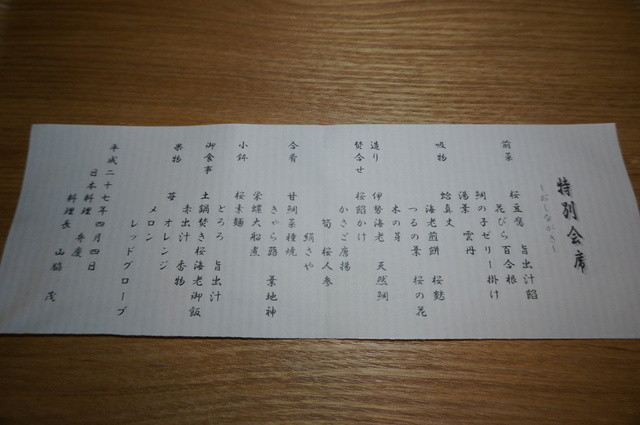 特別会席
〜おしながき〜
前菜 桜豆腐 旨出汁餡
花びら百合根
鯛の子ゼリー掛け
湯葉 雲丹
吸物 蛤真丈
海老煎餅 桜麩
つるの葉 桜の花
木の芽
造り 伊勢海老 天然鯛
焚合せ 桜餡かけ
かさご唐揚
筍 桜人参
絹さや
合肴 甘鯛菜種焼
きゃら蕗 葉地神
栄螺大船煮
小鉢 桜素麺
とろろ 旨出汁
御食事 土鍋焚き桜海老御飯
赤出汁 香物
果物 苺 オレンジ
メロン
レッドグローブ
平成二十七年四月四日
日本料理 弁慶
料理長 山脇 茂